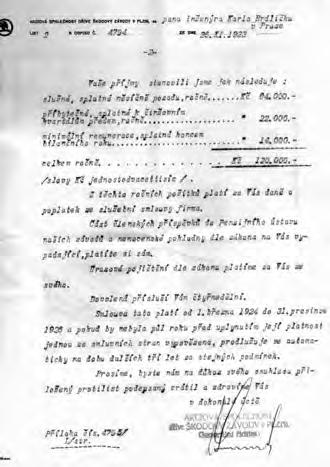 AKCIOVÁ SPOLEČNOST DŘÍVE ŠKODOVY ZÁVODY V PLZNI, na pana inženýra Karla Hrdličku
v Praze
LIST 2 K DOPISU Č. 4794 ZE DNE 26.XI.1923
-2-
Vaše příjmy stanovili jsme jak následuje :
služné, splatné měsíčně pozadu, ročně... Kč 84.000.-
příbytečné, splatné k činžovním
kvartálům předem, ročně... " 22.000.-
minimální remunerace, splatná koncem
bilančního roku... " 14.000.-
celkem ročně... Kč 120.000.-
/slovy Kč jednostodvacettisíc /.
Z těchto ročních požitků platí za Vás daně a
poplatek ze služební smlouvy firma.
Část členských příspěvků do Pensijního ústavu
našich závodů a nemocenské pokladny dle zákona na Vás vy-
padající, platíte si sám.
Úrazové pojištění dle zákona platíme za Vás ze
svého.
Dovolená přísluší Vám čtyřnedělní.
Smlouva tato platí od 1. března 1924 do 31. prosince
1926 a pokud by nebyla půl roku před uplynutím její platnosti
jednou ze smluvních stran vypovězena, prodlužuje se automa-
ticky na dobu dalších tří let za stejných podmínek.
Prosíme, byste nám na důkaz svého souhlasu při-
ložený protilist podepsaný vrátil a zdravíme Vás
v dokonalé úctě
AKCIOVÁ SPOLEČNOST
dříve ŠKODOVY ZÁVODY V PLZNI,
Příloha čís. 4795/
1/str.